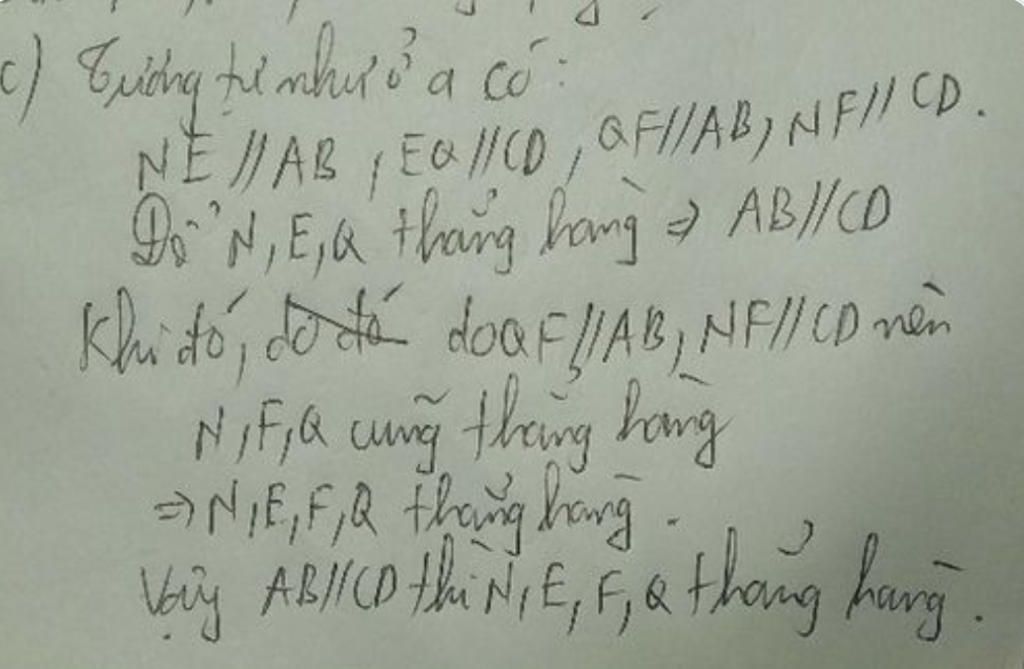 c) Tương tự như ở a có:
NE//AB, EQ//CD, QF//AB, NF//CD.
Để N,E,Q thẳng hàng ⇒ AB//CD
Khi đó, do đó do QF//AB, NF//CD nên
N,F,Q cũng thẳng hàng
⇒ N,E,F,Q thẳng hàng.
Vậy AB//CD thì N,E,F,Q thẳng hàng.